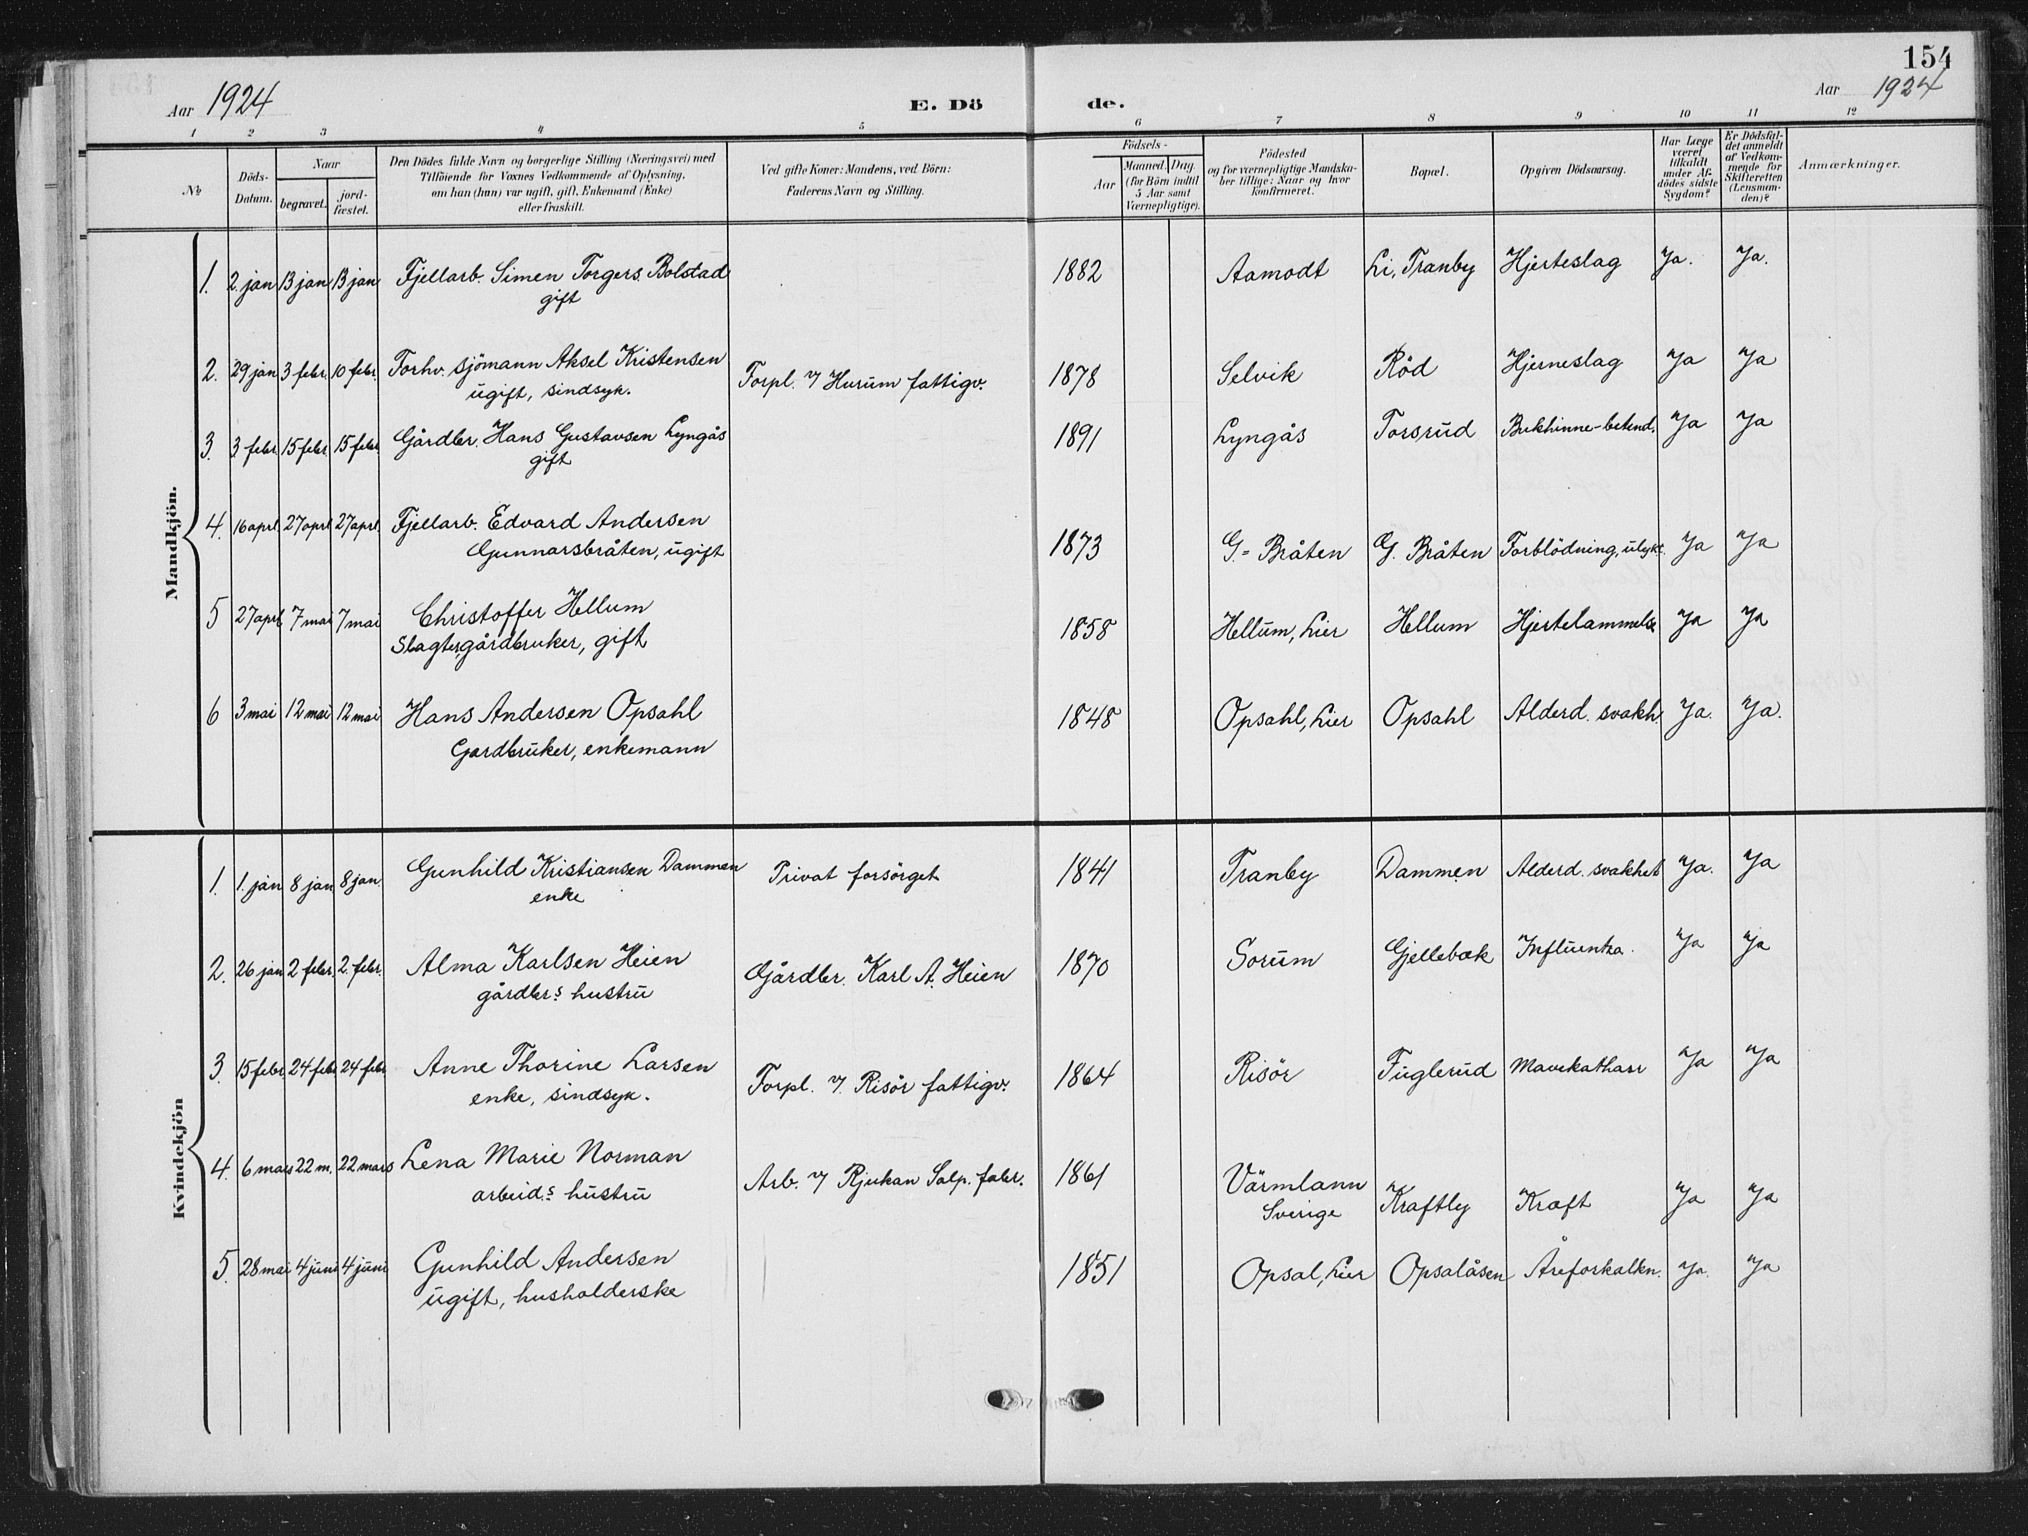 154
Aar 1924
E. Dö
de.
Aar 1924
1 2 3 4 5 6 7 8 9 10 11 12
№
Döds-Datum.
Naar
begravet.
jord-fæstet.
Den Dödes fulde Navn og borgerlige Stilling (Næringsvei) med
Tilföiende for Voxnes Vedkommende af Oplysning,
om han (hun) var ugift, gift, Enkemand (Enke)
eller fraskilt.
Ved gifte Koner: Mandens, ved Börn:
Faderens Navn og Stilling.
Födsels-
Aar
Maaned. Dag.
(for Börn indtil
5 Aar samt
Værnepligtige).
Födested
og for værnepligtige Mandska-
ber tillige: Naar og hvor
konfirmeret.
Bopæl.
Opgiven Dödsaarsag.
Har Læge
været
tilkaldt
under Af-
dödes sidste
Sygdom?
Er Dödsfal-
det anmeldt
af Vedkom-
mende for
Skifteretten
(Lensman-
den)?
Anmærkninger.
Mandkjön.
1. 2 jan 13 jan 13 jan Fjellarb. Simen Torgers. Bolstad 1882 Aamodt Li, Tranby Hjerteslag Ja. Ja.
gift
2. 29 jan 3 febr. 10 febr. Forhv. sjömann Aksel Kristensen Forpl. v/ Hurum fattigv. 1878 Selvik Röd Hjerneslag Ja Ja
ugift, sindsyk.
3. 3 febr. 15 febr. 15 febr. Gårdbr. Hans Gustavsen Lyngås 1891 Lyngås Torsrud Bukhinne-betend. Ja Ja
gift
4. 16 apri 27 april 27 april Fjellarb. Edvard Andersen
Gunnarsbråten, ugift 1873 G.= Bråten G. Bråten Forblödning, ulykk. Ja Ja
5 27 april 7 mai 7 mai Christoffer Hellum 1858 Hellum, Lier Hellum Hjertelammelse Ja Ja
Slagter, gårdbruker, gift
6 3 mai 12 mai 12 mai Hans Andersen Opsahl 1848 Opsahl, Lier Opsahl Alderd. svakh. Ja. Ja.
Gardbruker, enkemann
Kvindekjön
1. 1. jan 8 jan 8 jan. Gunhild Kristiansen Dammen Privat forsörget 1841 Tranby Dammen Alderd. svakhet Ja. Ja
enke
2. 26 jan 2 febr. 2. febr. Alma Karlsen Heien Gårdbr. Karl A. Heien 1870 Sorum Gjellebæk Influenka. Ja Ja
gårdbr.s hustru
3. 15 febr. 24 febr 24 febr. Anne Thorine Larsen Forpl. v/. Risör fattigv. 1864 Risör Fuglerud Mavekatharr Ja Ja
enke, sindsyk.
4. 6 mars 22 m. 22 mars Lena Marie Norman Arb. v/ Rjukan Salp. fabr. 1861 Värmlann Kraftly Kræft Ja Ja
arbeid.s hustru Sverige
5. 28 mai 4 juni 4 juni Gunhild Andersen 1851 Opsal, Lier Opsalåsen Åreforkalkn. Ja. Ja
ugift, husholderske